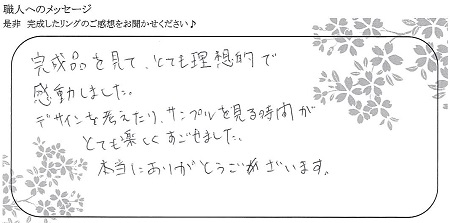 職人へのメッセージ
是非 完成したリングのご感想をお聞かせください♪
完成品を見て、とても理想的で
感動しました。
デザインを考えたり、サンプルを見る時間が
とても楽しくすごせました。
本当にありがとうございます。